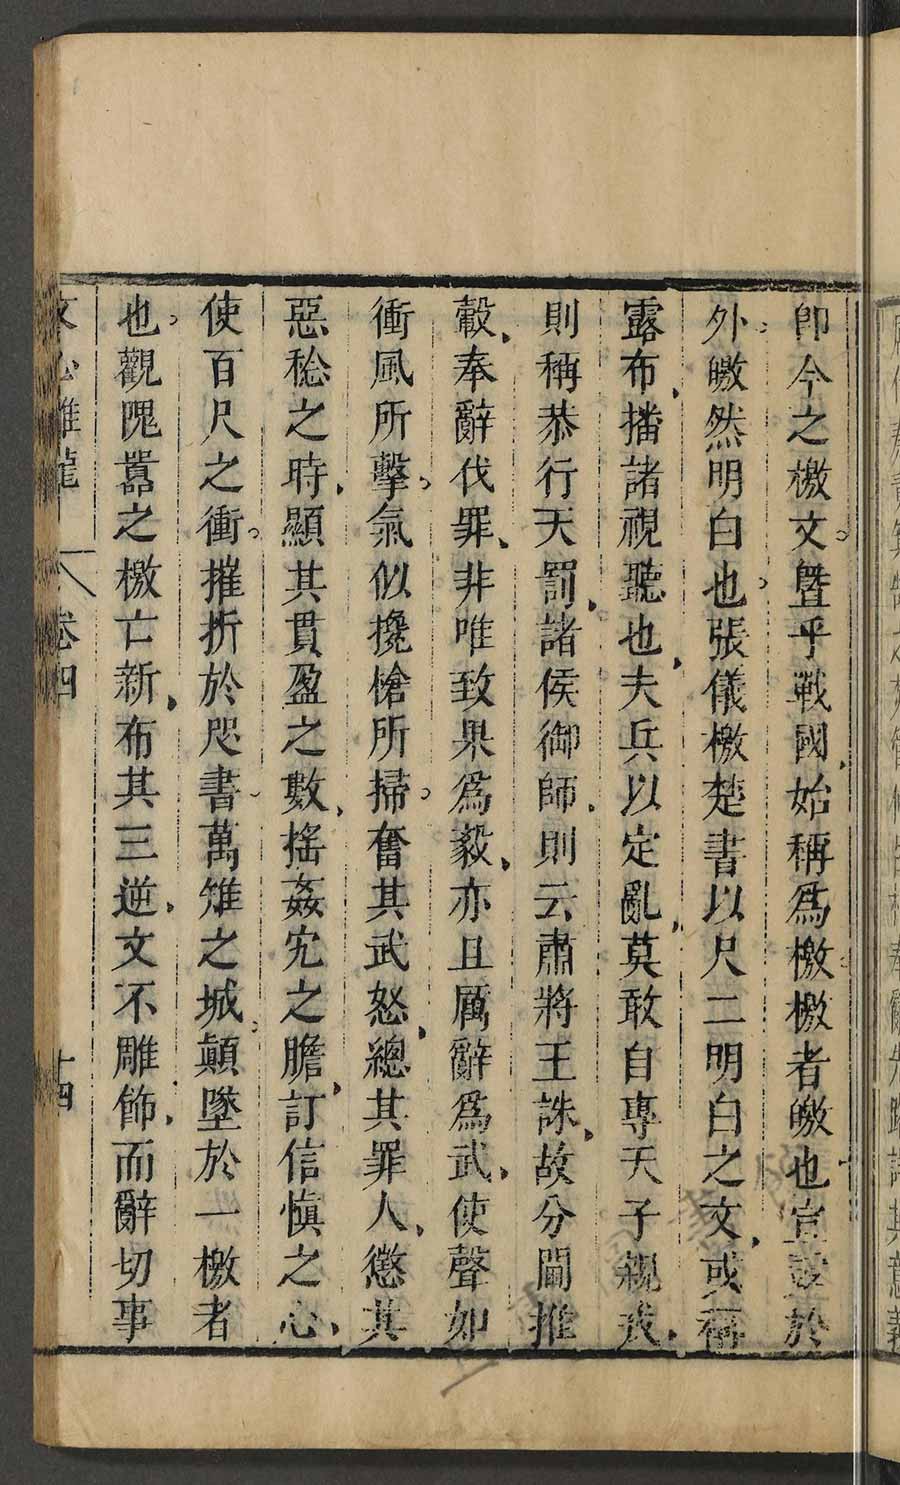 即今之檄文曁乎戰國始稱爲檄檄者皦也宣露於
外皦然明白也張儀檄楚書以尺二明白之文或稱
露布播諸視聽也夫兵以定亂莫敢自專天子親戎
則稱恭行天罰諸侯御師則云肅將王誅故分閫推
轂奉辭伐罪非唯致果爲毅亦且厲辭爲武使聲如
衝風所擊氣似攙槍所掃奮其武怒總其罪人懲其
惡稔之時顯其貫盈之數搖姦宄之膽訂信愼之心
使百尺之衝摧折於咫書萬雉之城顚墜於一檄者
也觀隗囂之檄亡新布其三逆文不雕飾而辭切事
文心雕龍 卷四 十四